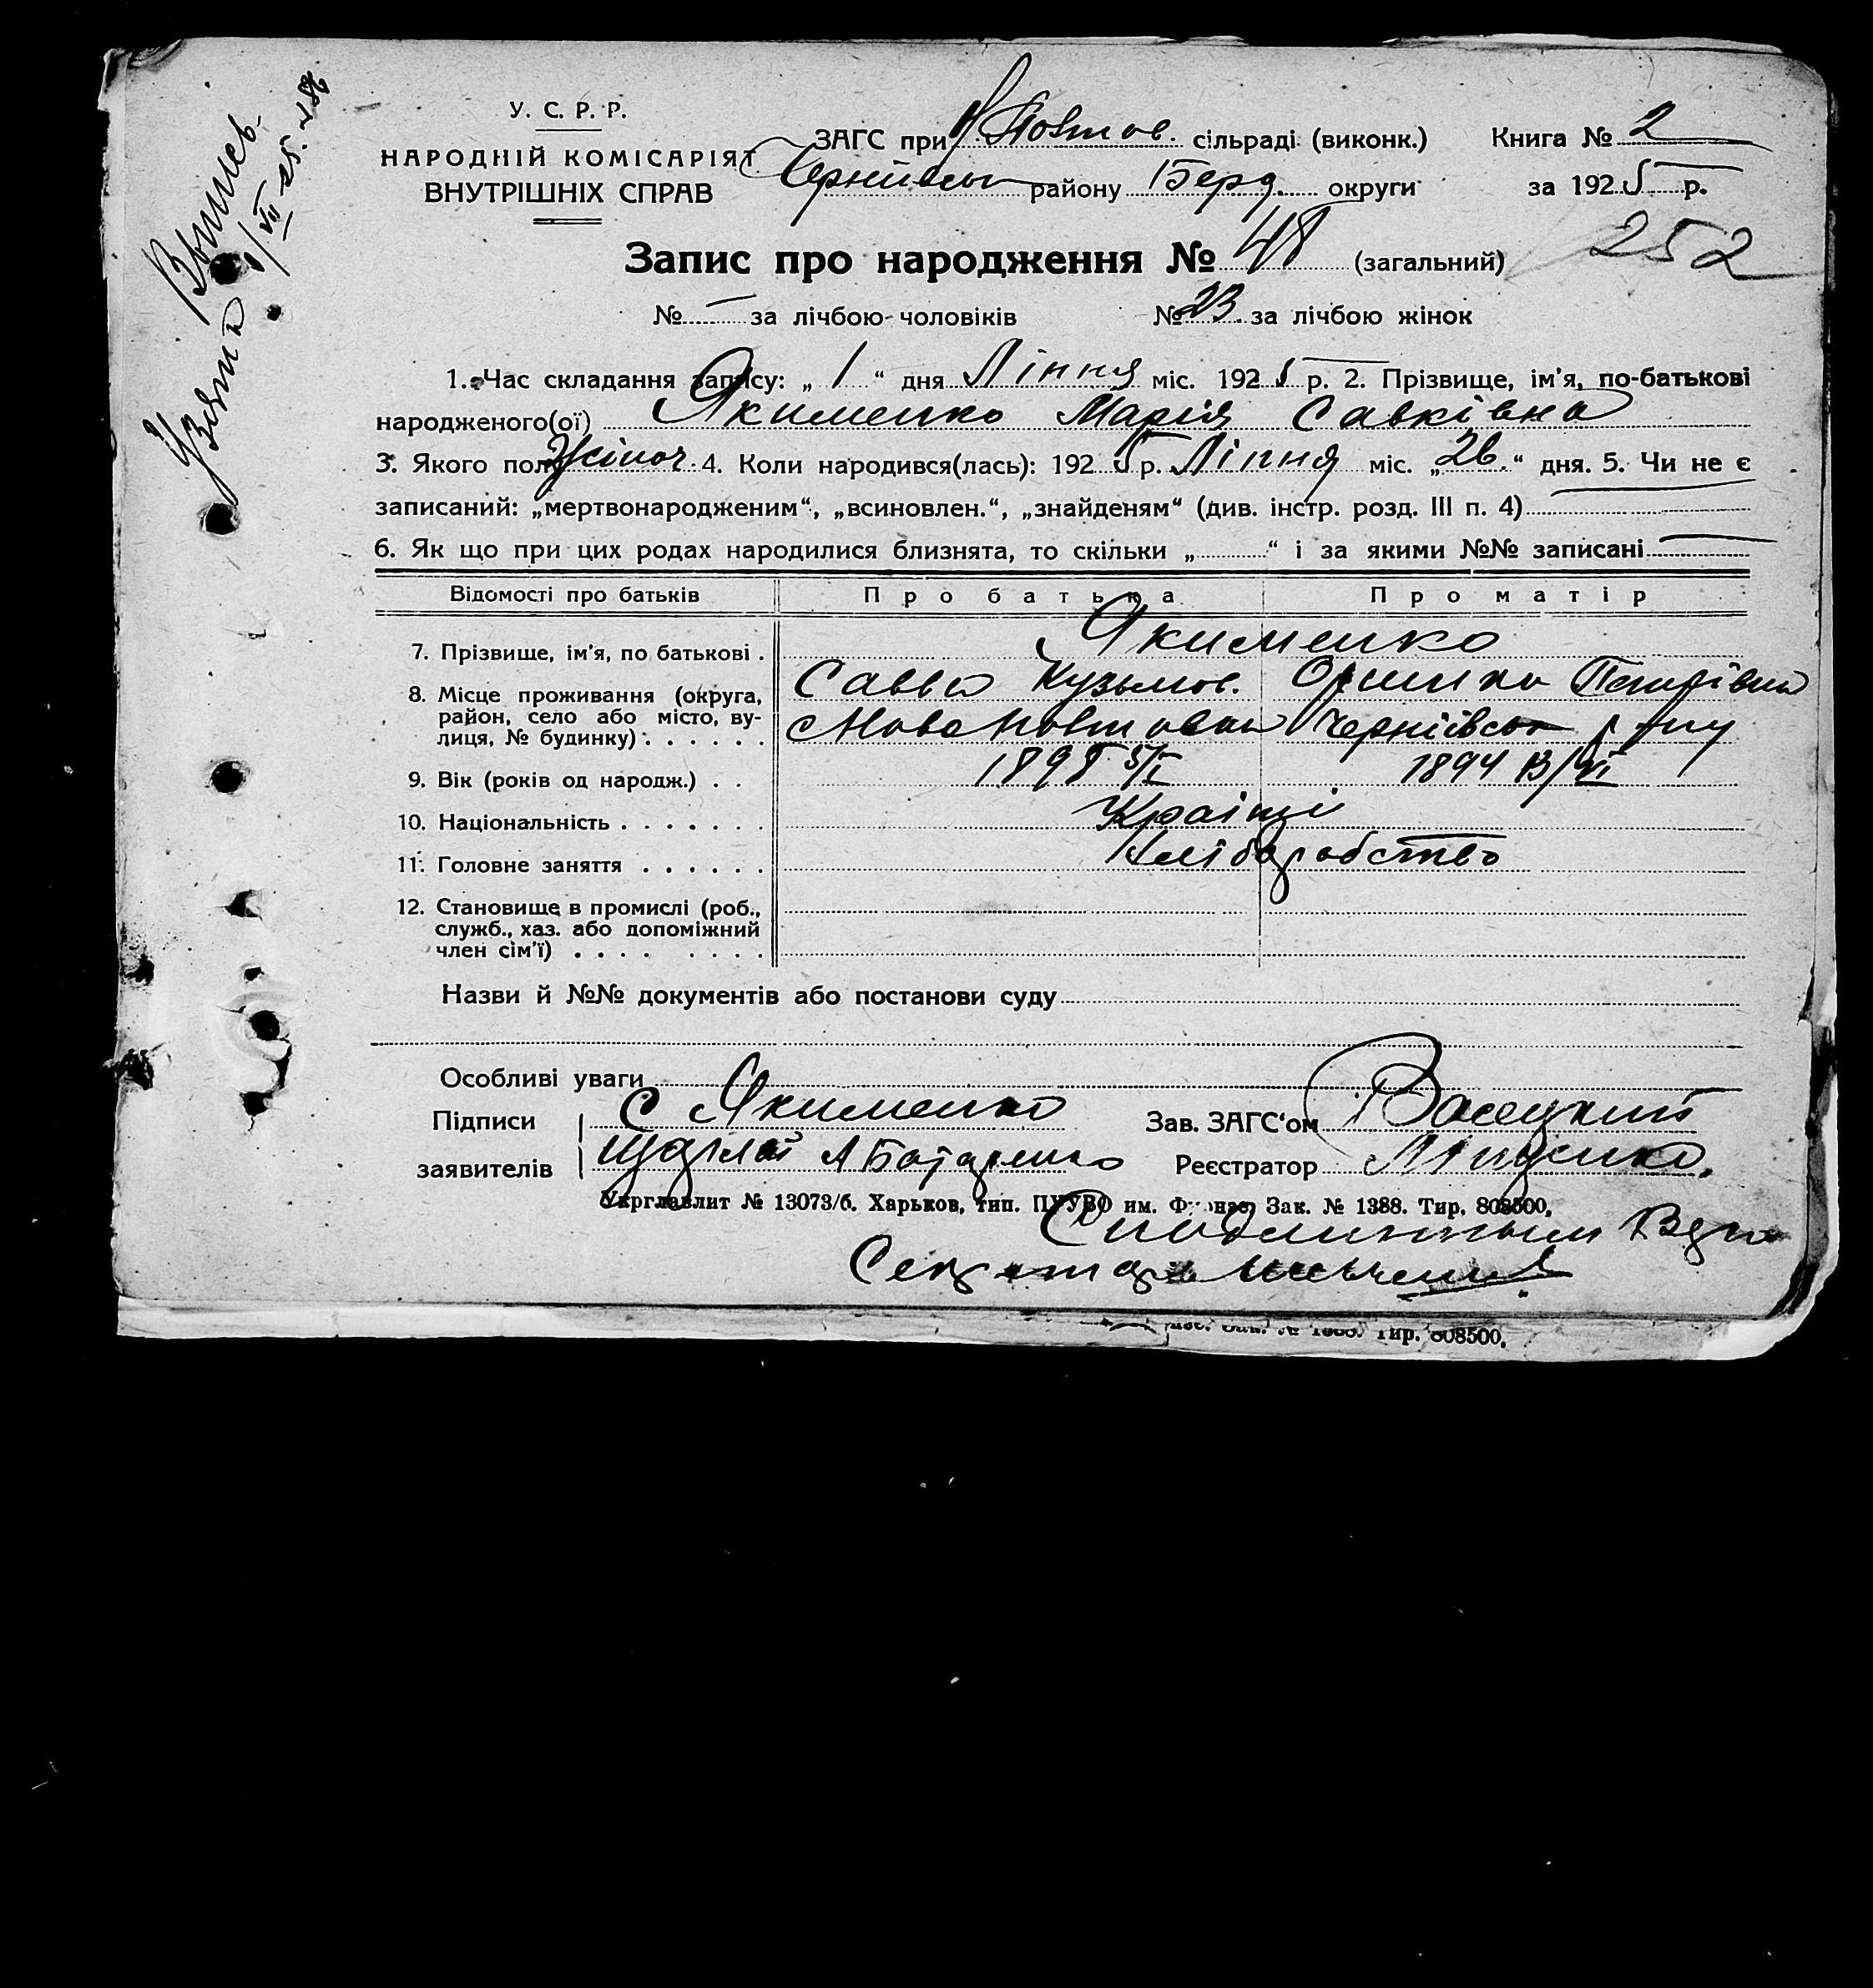 У. С. Р. Р.
НАРОДНІЙ КОМІСАРІЯТ
ВНУТРІШНІХ СПРАВ
ЗАГС при Н Повтов. сільраді (виконк.) Книга № 2
району Берд. округи за 1925 р.
Запис про народження № 48 (загальний) 252
№ — за лічбою чоловіків № 23. за лічбою жінок
1. Час складання запису: „ 1 “ дня Ліпня міс. 1925 р. 2. Прізвище, ім'я, по-батькові
народженого(ої) Якименко Марія Савківна
3. Якого полу Жіноч. 4. Коли народився(лась): 1925 р. Ліпня міс. „ 26. “ дня. 5. Чи не є
записаний: „мертвонародженим“, „всиновлен.“, „знайденям“ (див. інстр. розд. III п. 4)
6. Як що при цих родах народилися близнята, то скільки „ “ і за якими №№ записані —
Відомості про батьків Про батька Про матір
7. Прізвище, ім'я, по батькові . Якименко
Савва Кузьмов. Оришка Петрівна
8. Місце проживання (округа,
район, село або місто, ву-
лиця, № будинку) . . . . . .
9. Вік (років од народж.) . . 1898 5/I 1894 13/VI
10. Національність . . . . . . .
11. Головне заняття . . . . . . Хліборобство
12. Становище в промислі (роб.,
служб., хаз. або допоміжний
член сім'ї) . . . . . . . .
Назви й №№ документів або постанови суду
Особливі уваги
Підписи
заявителів
С Якименко
Зав. ЗАГС'ом Васецкий
Реєстратор
Укрглавлит № 13073/б. Харьков, тип. ПУУВО им. Фрунзе. Зак. № 1388. Тир. 808500.
Сподлинным
Секретарь
Тир. 808500.
Взята
Выпись
1/VII 25.